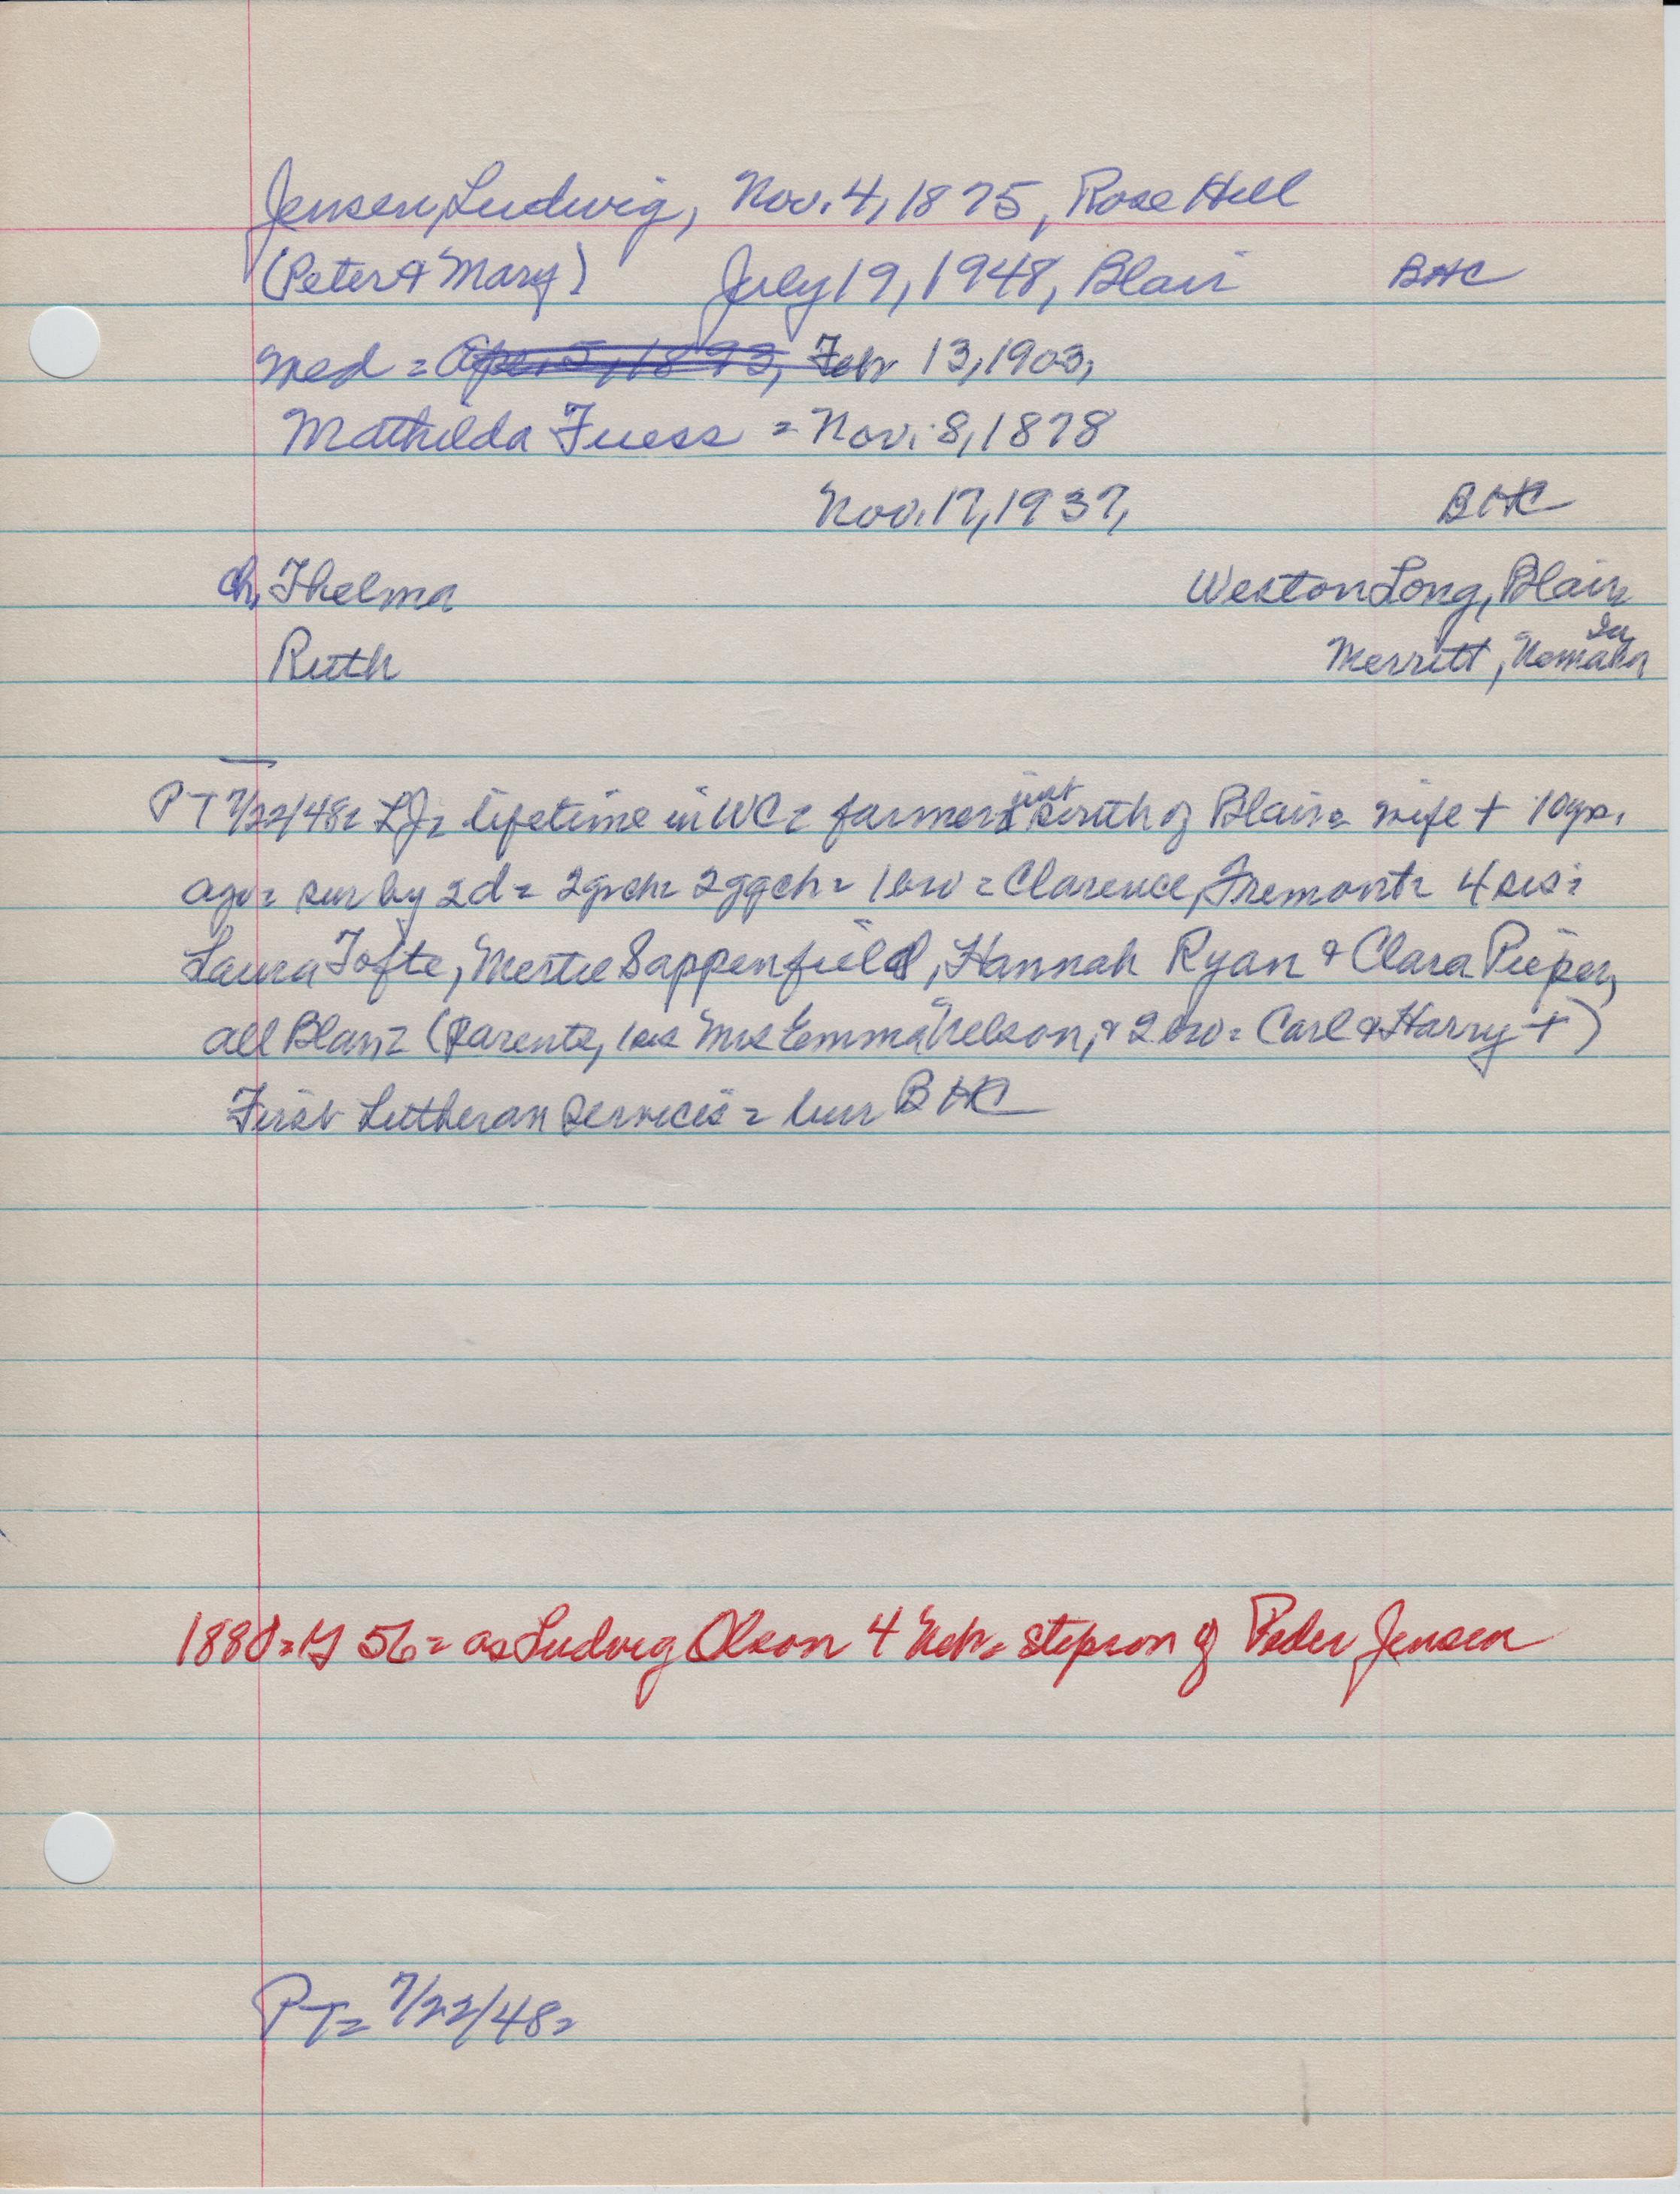 Jensen, Ludwig, Nov. 4, 1875, Rose Hill
(Peter & Mary) July 19, 1948, Blair BHC
med = Apr. 5, 1893, Febr 13, 1903,
Mathilda Fuess = Nov. 8, 1878
Nov. 17, 1937, BHC
ch, Thelma Weston Long, Blair
Ruth Merritt, Nemaha Ia
PT 7/22/48= LJ= lifetime in WC= farmer just south of Blair= wife + 10 yrs.
ago= sur by 2d= 2grch= 2ggch= 1bro= Clarence, Fremont= 4 sis=
Laura Tofte, Mertie Sappenfield, Hannah Ryan & Clara Pieper,
all Blair= (parents, 1sis Mrs Emma Nelson, & 2 bro= Carl & Harry +)
First Lutheran services= bur BHC
1880= 56= as Ludvig Olson 4 Neb= stepson of Peder Jensen
PT= 7/22/48=